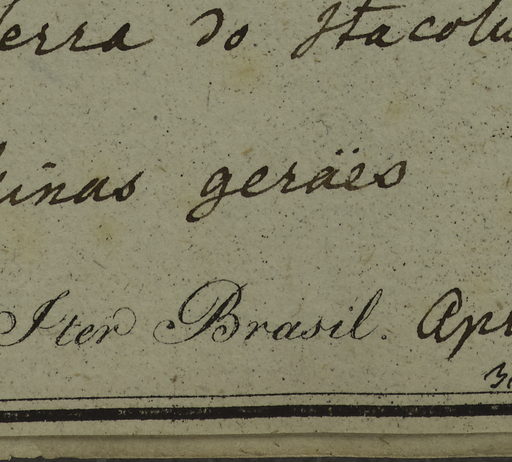 erra do Itacolu
inas geräes
Iter Brasil. Apr
3